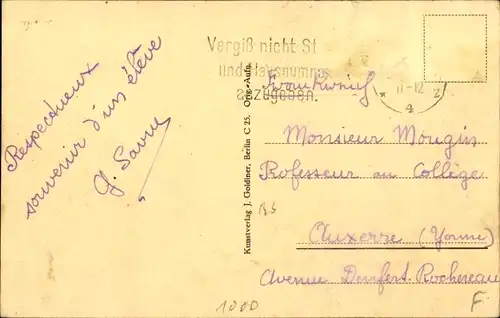 Respectueux
souvenir d'un élève
G. Savru
Kunstverlag J. Goldiner, Berlin C 25. Orig.-Aufn.
Vergiß nicht St
und Hausnummer
anzugeben.
(Frankreich)
Monsieur Mougin
Professeur au Collège
Auxerre (Yonne)
Avenue Denfert-Rochereau
1000
F